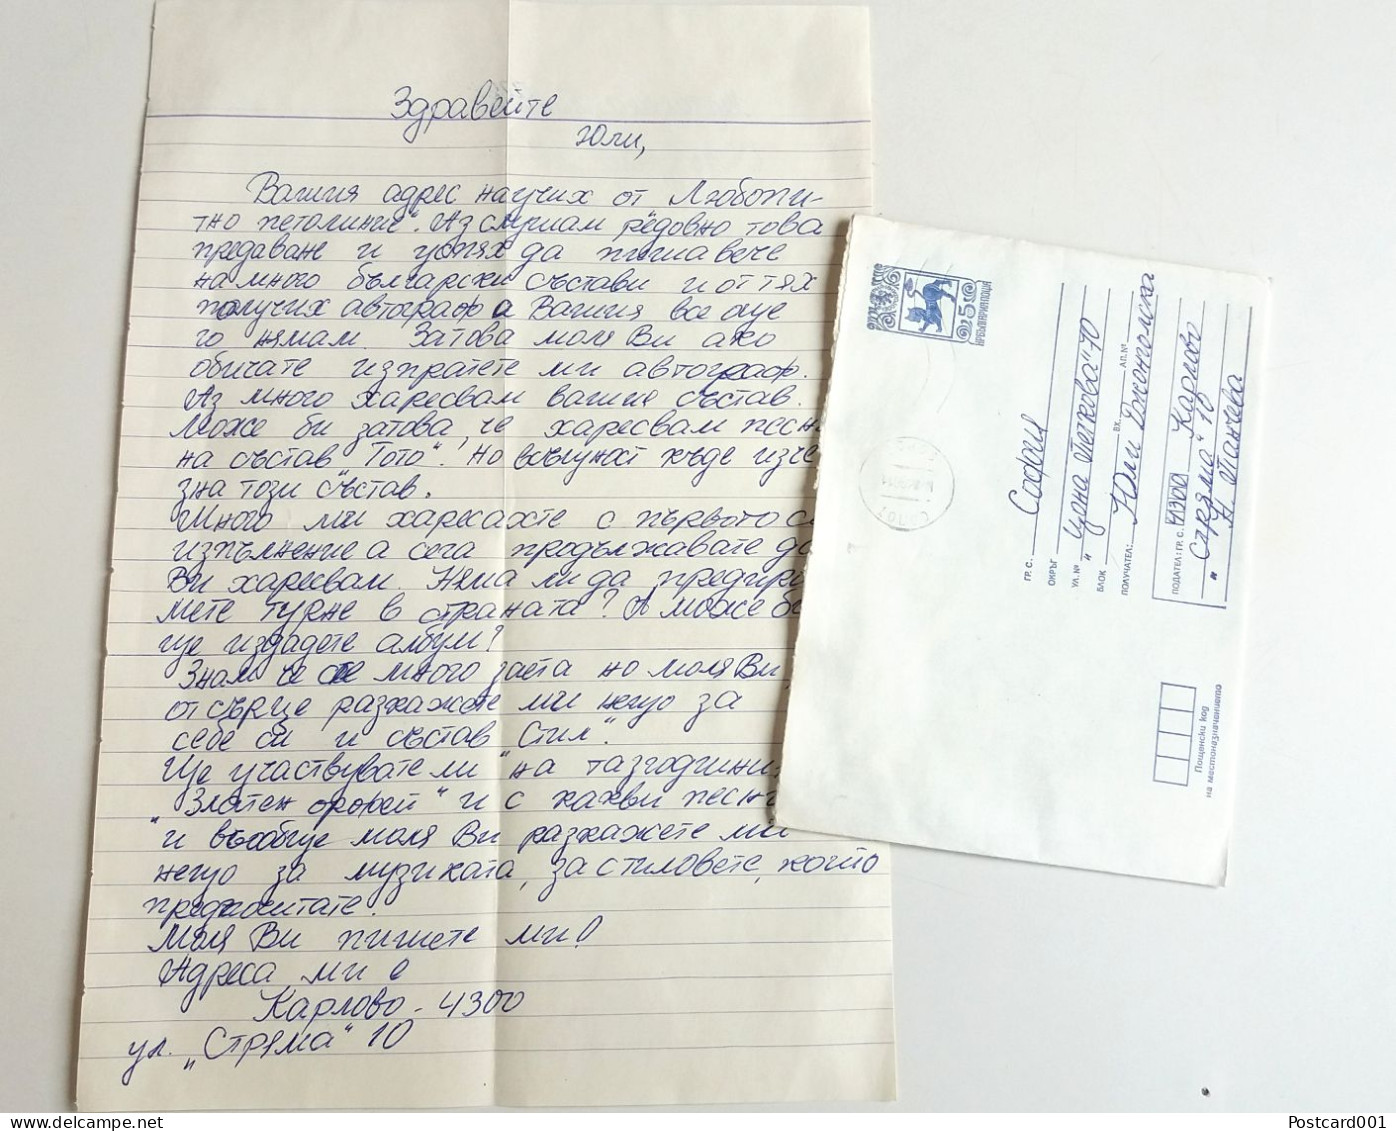 Здравейте
Юли,
Вашия адрес научих от Любопи-
тно петолиние". Аз слушам редовно това
предаване и успях да пиша вече
на много български състави и от тях
получих автограф а Вашия все още
го нямам. Затова моля Ви ако
обичате изпратете ми автограф.
Аз много харесвам вашия състав.
Може би затова, че харесвам песни
на състав "Тото". Но всъщност къде изче
зна този състав.
Много ми харесахте с първото си
изпълнение а сега продължавате да
Ви харесвам. Няма ли да предприе
мете турне в страната? А може би
ще издадете албум?
Знам че сте много заета но моля Ви,
от сърце разкажете ми нещо за
себе си и състав "Стил".
Ще участвувате ли на тазгодишни
"Златен орфей" и с какви песни
и въобще моля Ви разкажете ми
нещо за музиката, за стиловете, които
предпочитате.
Моля Ви пишете ми!
Адреса ми е
Карлово - 4300
ул. "Стряма" 10
НРБЪЛГАРИЯ ПОЩА
25
ГР. С.: София
ОКРЪГ
УЛ. № "Цона Петкова" 40
БЛОК ВХ. АП. №
ПОЛУЧАТЕЛ: Юли
ПОДАТЕЛ: ГР. С. 4300 Карлово
"Стряма" 10
Н. Танчева
Пощенски код
на местоназначението
Postcard001